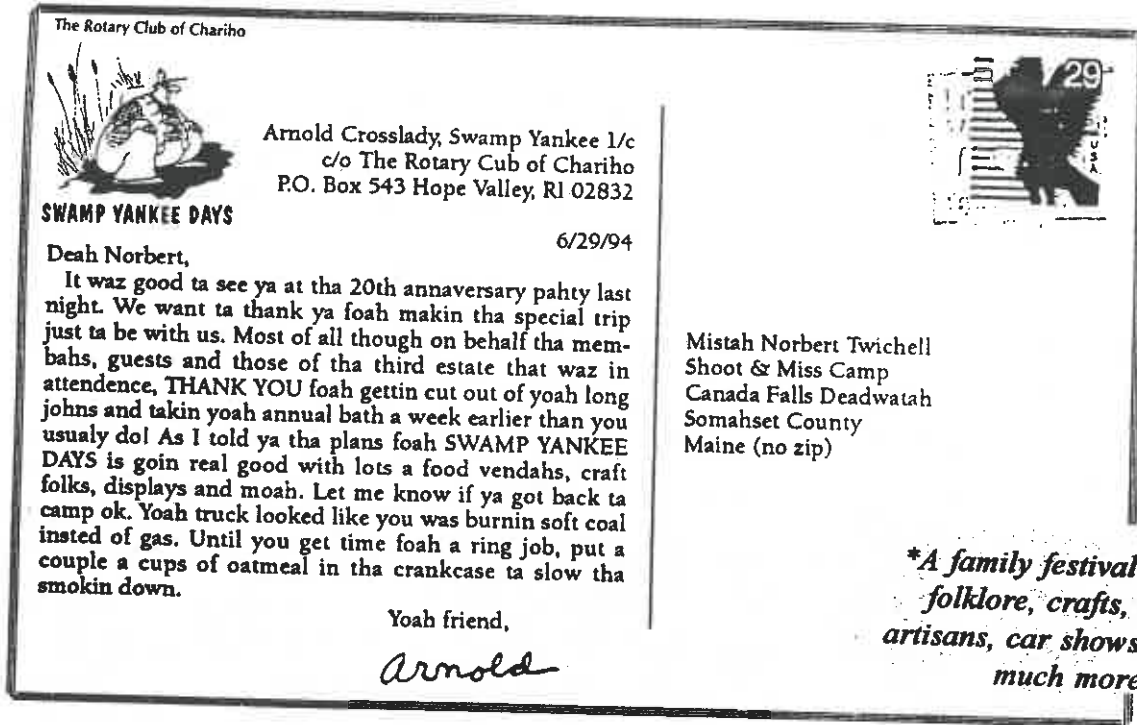 The Rotary Club of Chariho
SWAMP YANKEE DAYS
Arnold Crosslady, Swamp Yankee 1/c
c/o The Rotary Cub of Chariho
P.O. Box 543 Hope Valley, RI 02832
6/29/94
Deah Norbert,
It waz good ta see ya at tha 20th annaversary pahty last
night. We want ta thank ya foah makin tha special trip
just ta be with us. Most of all though on behalf tha mem-
bahs, guests and those of tha third estate that waz in
attendence, THANK YOU foah gettin cut out of yoah long
johns and takin yoah annual bath a week earlier than you
usualy do! As I told ya tha plans foah SWAMP YANKEE
DAYS is goin real good with lots a food vendahs, craft
folks, displays and moah. Let me know if ya got back ta
camp ok. Yoah truck looked like you was burnin soft coal
insted of gas. Until you get time foah a ring job, put a
couple a cups of oatmeal in tha crankcase ta slow tha
smokin down.
Yoah friend,
Arnold
29
USA
Mistah Norbert Twichell
Shoot & Miss Camp
Canada Falls Deadwatah
Somahset County
Maine (no zip)
*A family festival
folklore, crafts,
artisans, car shows
much more